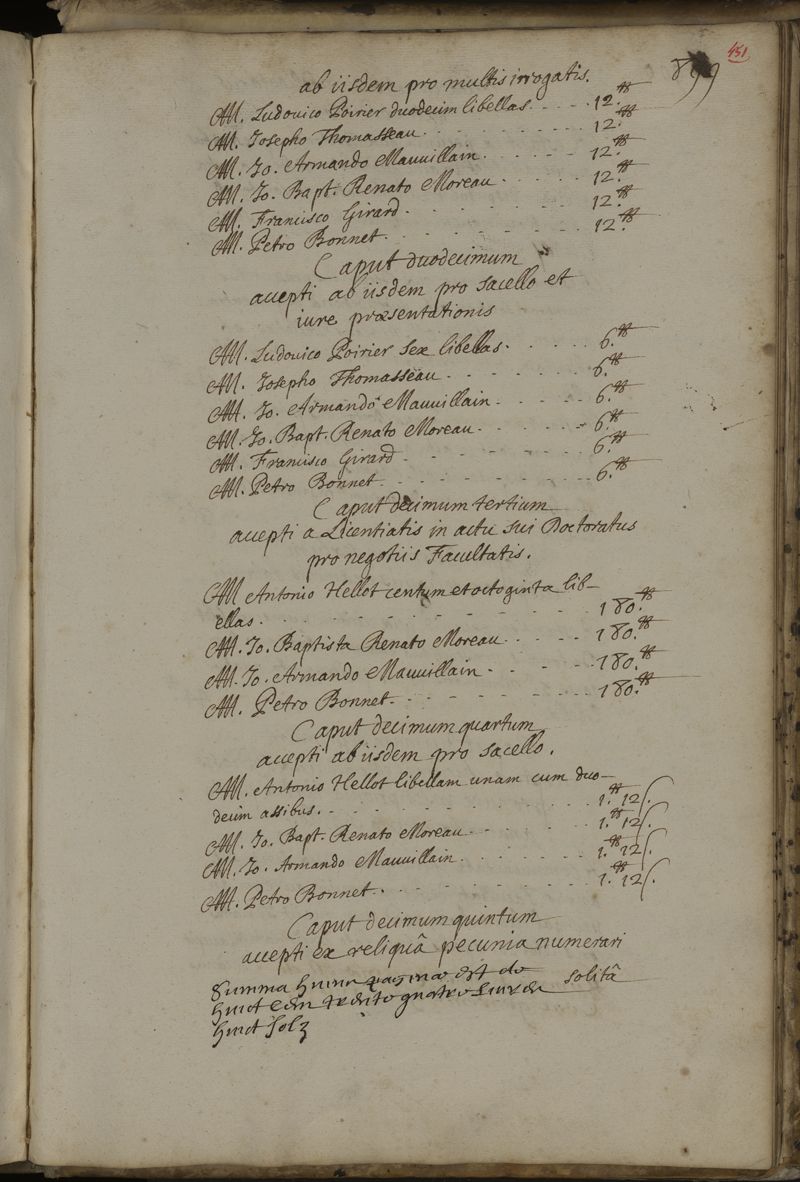 451
899
ab iisdem pro multis irrogatis.
M. Ludovico Poirier duodecim libellas - - - - 12.tt
M. Josepho Thomasseau - - - - - - - - 12.tt
M. Jo. Armando Mauvillain - - - - - - 12.tt
M. Jo. Bapt. Renato Moreau - - - - - 12.tt
M. Francisco Girard - - - - - - - - 12.tt
M. Petro Bonnet - - - - - - - - - 12.tt
Caput duodecimum
accepti ab iisdem pro sacello et
iure præsentationis
M. Ludovico Poirier sex libellas - - - - - 6.tt
M. Josepho Thomasseau - - - - - - - 6.tt
M. Jo. Armando Mauvillain - - - - - 6.tt
M. Jo. Bapt. Renato Moreau - - - - - 6.tt
M. Francisco Girard - - - - - - - - 6.tt
M. Petro Bonnet - - - - - - - - - 6.tt
Caput decimum tertium
accepti a Licentiatis in actu sui Doctoratus
pro negotiis Facultatis.
M Antonio Hellot centum et octoginta lib-
ellas - - - - - - - - - - - - 180.tt
M. Jo. Baptista Renato Moreau - - - - 180.tt
M. Jo. Armando Mauvillain - - - - - 180.tt
M. Petro Bonnet - - - - - - - - 180.tt
Caput decimum quartum
accepti ab iisdem pro sacello.
M. Antonio Hellot libellam unam cum duo-
decim assibus. - - - - - - - - - 1.tt 12 s.
M. Jo. Bapt. Renato Moreau - - - - - 1.tt 12 s.
M. Jo. Armando Mauvillain - - - - - 1.tt 12 s.
M. Petro Bonnet - - - - - - - - 1.tt 12 s.
Caput decimum quintum
accepti ex reliquâ pecunia numerari
solitâ
Summa huius paginae est de
huict cen trente quatre livres
huict solz